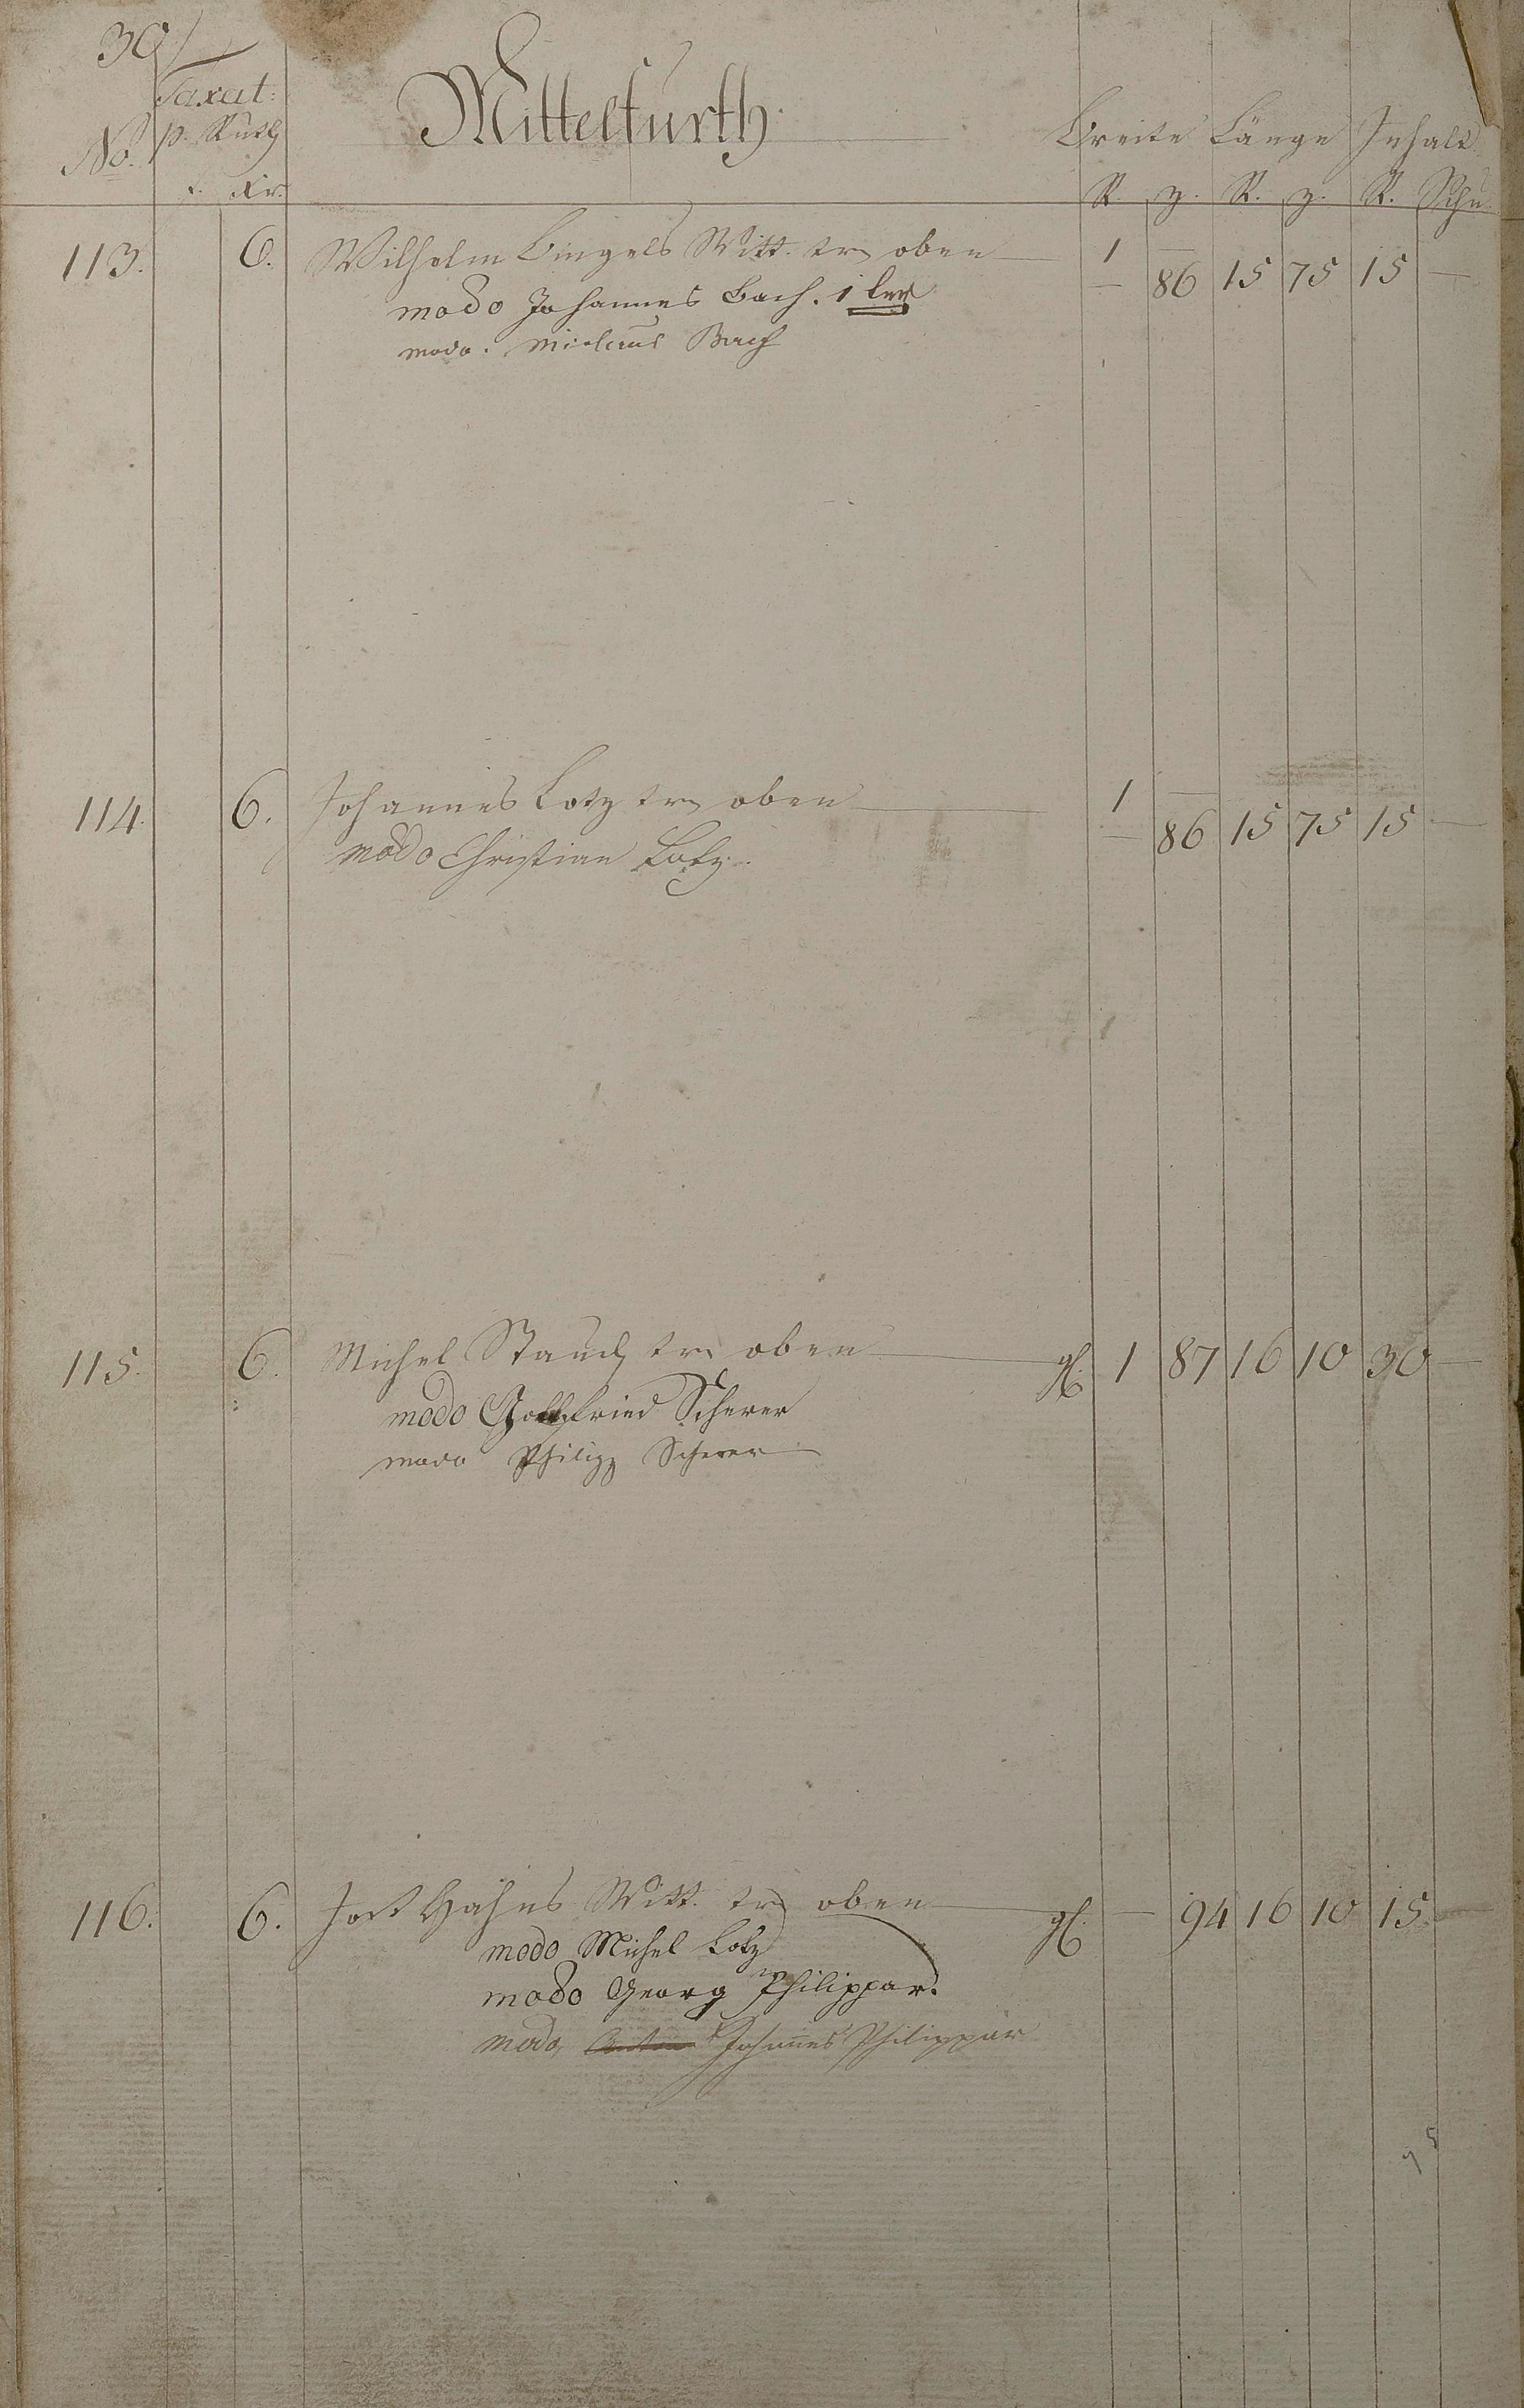 30
Taxat:
No. p. Ruth
Mittelfurth
Breite Länge Inhalt
f. Xr. R. z. R. z. R. Schu
113. 6. Wilhelm Bingels Witt. oben 1 — 86 15 75 15 —
modo Johannes Bach. 1 ler
modo. Bach
114. 6. Johannes Lotz oben 1 — 86 15 75 15 —
modo Christian Lotz.
115. 6. Michel Stauch oben gl. 1 87 16 10 30 —
modo Gottfried Scherer
modo Philipp Scherer
116. 6. Jost Hahns Witt. oben gl. — 94 16 10 15 —
modo Michel Lotz
modo Georg Philippar.
modo, Johannes Philippar